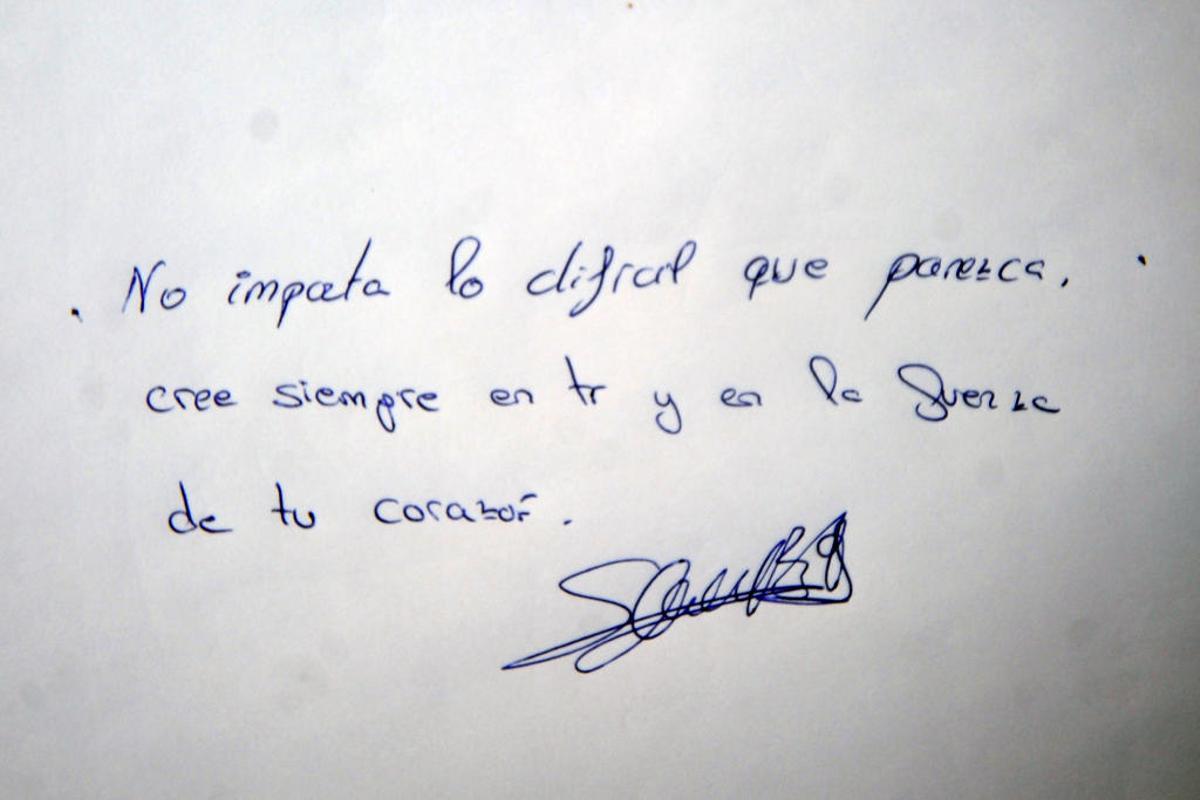 No importa lo dificil que parezca,
cree siempre en ti y en la fuerza
de tu corazón.